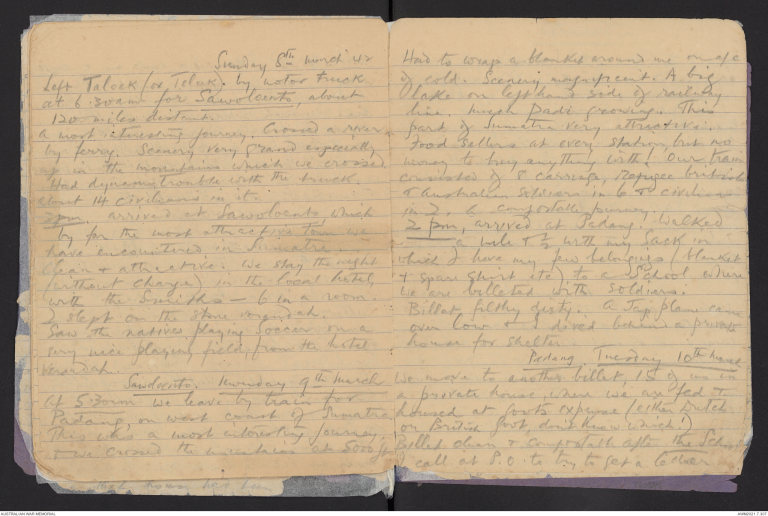 Sunday 8th March 42
Left Talock (or Teluk) by motor truck
at 6.30am for Sawoloento, about
120 miles distant.
A most interesting journey. Crossed a river
by ferry. Scenery very grand especially
up in the mountains which we crossed.
Had dynamo trouble with the truck.
About 14 civilians in it.
2pm. arrived at Sawoloento, which
by far the most attractive town we
have encountered in Sumatra.
Clean & attractive. We stay the night
(without charge) in the local hotel,
with the Smiths – 6 in a room
I slept on the stone verandah.
Saw the natives playing soccer on a
very nice playing field, from the hotel
verandah.
Sawoloento. Monday 9th March
At 5.30am we leave by train for
Padang, on west coast of Sumatra
This was a most interesting journey,
as we crossed the mountains at 5000 ft
Had to wrap a blanket around me on a/c
of cold. Scenery magnificent. A big
lake on left hand side of railway
line. Much padi growing. This
part of Sumatra very attractive.
Food sellers at every station, but no
money to buy anything with! Our train
consisted of 8 carriages, refugee British
& Australian soldiers in 6 & civilians
in 2. A comfortable journey.
2 pm, arrived at Padang. Walked
a mile & ½ with my sack in
which I have my few belongings (blanket
& spare shirt etc) to a School where
we are billeted with soldiers.
Billet filthy dirty. A Jap plane came
over low & I dived behind a private
house for shelter.
Padang Tuesday 10th March
We move to another billet, 15 of us in
a private house, where we are fed &
housed at govts expense (either Dutch
or British Govt, don't know which!)
Billet clean & comfortable after the School
I call at P.O. to try to get a letter
AUSTRALIAN WAR MEMORIAL